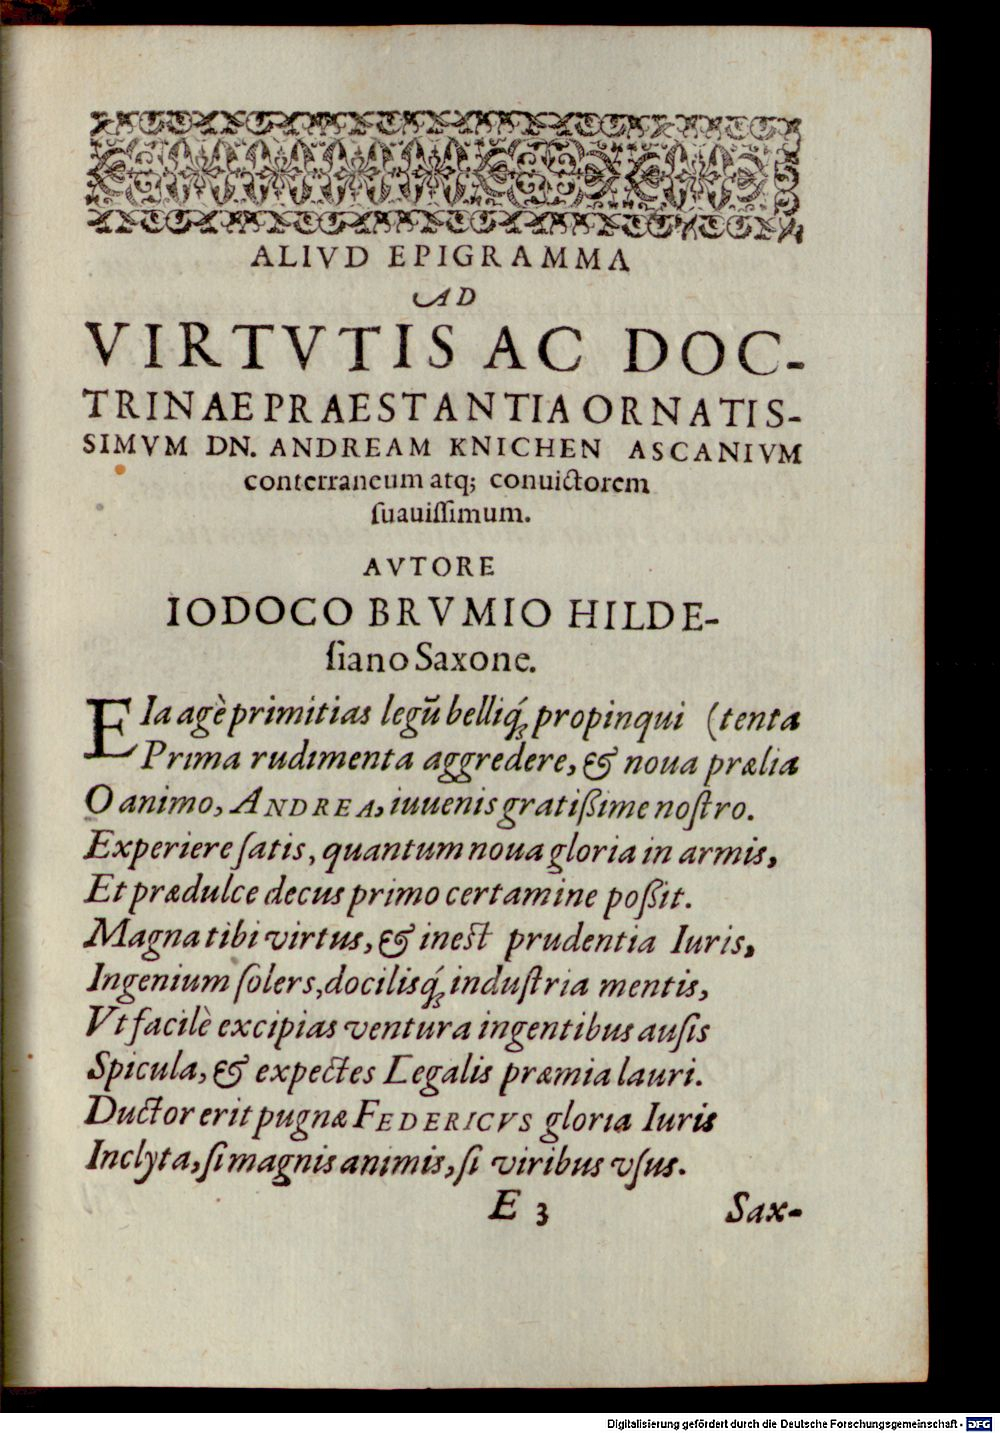 ALIVD EPIGRAMMA
AD
VIRTVTIS AC DOC-
TRINAE PRAESTANTIA ORNATIS-
SIMVM DN. ANDREAM KNICHEN ASCANIVM
conterraneum atq; conuictorem
suauissimum.
AVTORE
IODOCO BRVMIO HILDE-
siano Saxone.
EIa agè primitias legū belliq́; propinqui (tenta
Prima rudimenta aggredere, & noua prælia
O animo, ANDREA, iuuenis gratißime nostro.
Experiere satis, quantum noua gloria in armis,
Et prædulce decus primo certamine poßit.
Magna tibi virtus, & inest prudentia Iuris,
Ingenium solers, docilisq́; industria mentis,
Vt facilè excipias ventura ingentibus ausis
Spicula, & expectes Legalis præmia lauri.
Ductor erit pugnæ FEDERICVS gloria Iuris
Inclyta, si magnis animis, si viribus vsus.
E 3 Sax-
Digitalisierung gefördert durch die Deutsche Forschungsgemeinschaft - DFG